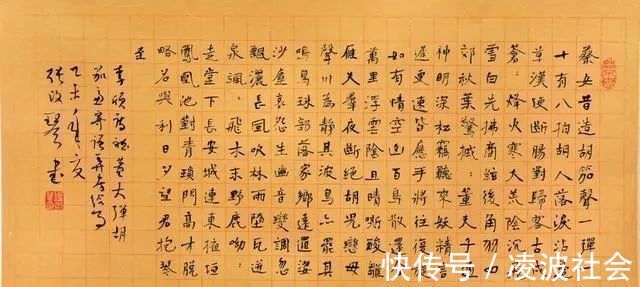 蔡女昔造胡笳聲一彈
十有八拍胡人落淚沾
草漢使斷腸對歸客古戍
蒼:烽火寒大荒陰沉
雪白先拂商絃後角羽四
郊秋葉驚摵:董夫子通
神明深松竊聽來妖精言
遲更速皆應手將往復旋
如有情空山百鳥散還合
萬里浮雲陰且晴嘶酸雛
雁失羣夜斷絕胡兒戀母
聲川為靜其波鳥亦罷其
鳴烏珠部落家鄉遠邏娑
沙塵哀怨生幽音變調忽
飄灑長風吹林雨墮瓦迸
泉颯:飛木末野鹿呦:
走堂下長安城連東掖垣
鳳凰池對青瑣門高才脫
略名與利日夕望君抱琴
至
李頎詩聽董大彈胡
笳兼寄語弄房給事
乙未年夏
張改琴書
快传号 / 凌波社会